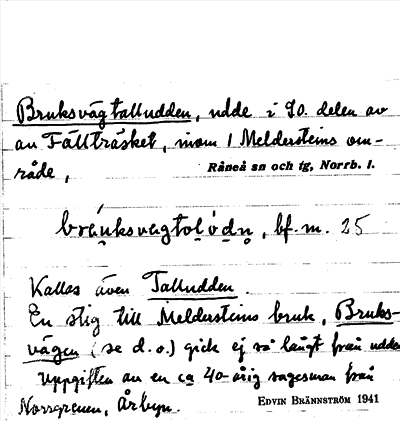 Bruksvägtalludden, udde i So. delen av
av Fällträsket, inom 1 Meldersteins om-
råde,
Råneå sn och tg, Norrb. l.
bf. m. 25
Kallas även Talludden.
En stig till Meldersteins bruk, Bruks-
vägen (se d. o.) gick ej så långt från udden
Uppgiften av en ca 40-årig sagesman från
Norrgrenen, Årbyn.
EDVIN BRÄNNSTRÖM 1941